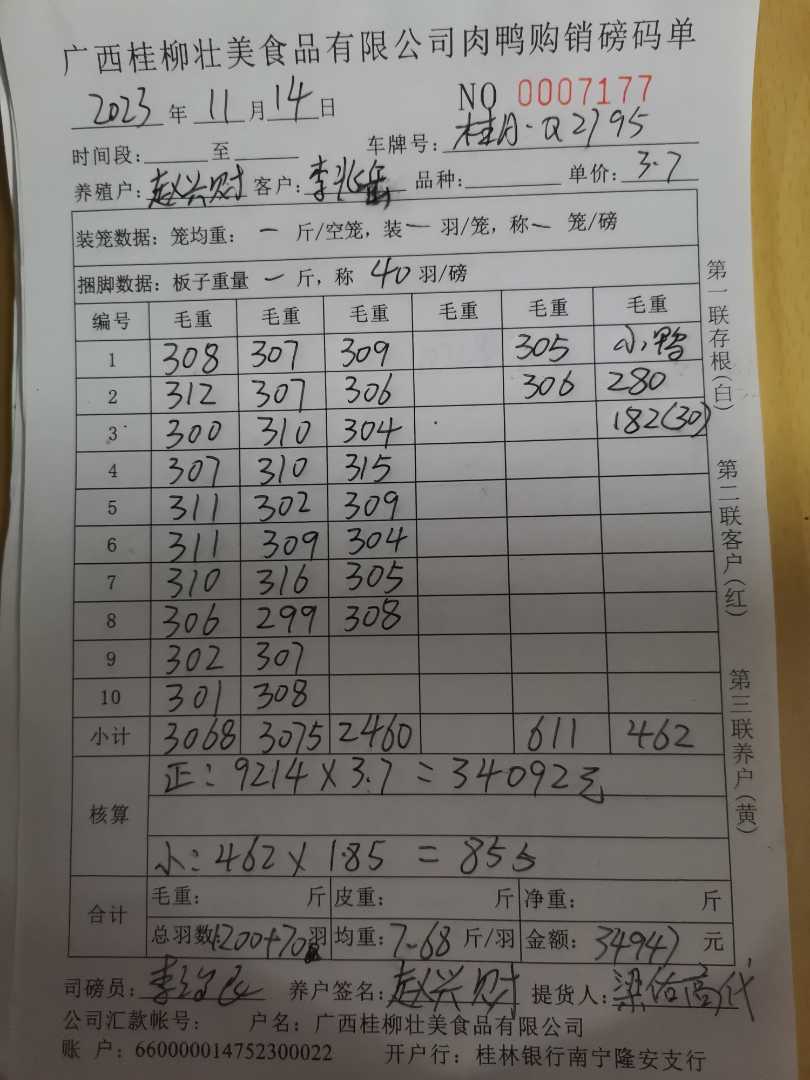 广西桂柳壮美食品有限公司肉鸭购销磅码单
2023年11月14日 NO 0007177
时间段:______至______ 车牌号: 桂A·Q2795
养殖户: 赵兴财 客户: 李兆 品种: 单价: 3.7
装笼数据: 笼均重: 一 斤/空笼, 装一 羽/笼, 称一 笼/磅
捆脚数据: 板子重量 一 斤, 称 40 羽/磅
编号 毛重 毛重 毛重 毛重 毛重 毛重
1 308 307 309 305 小鸭
2 312 307 306 306 280
3 300 310 304 182(30)
4 307 310 315
5 311 302 309
6 311 309 304
7 310 316 305
8 306 299 308
9 302 307
10 301 308
小计 3068 3075 2460 611 462
核算 正: 9214×3.7=34092元
小: 462×1.85=855
合计 毛重: 斤 皮重: 斤 净重: 斤
总羽数: 1200+70羽 均重: 7-68 斤/羽 金额: 34947 元
司磅员: 李 养户签名: 赵兴财 提货人: 梁佑高代
公司汇款帐号: 户名: 广西桂柳壮美食品有限公司
账 户: 660000014752300022 开户行: 桂林银行南宁隆安支行
第一联存根(白) 第二联客户(红) 第三联养户(黄)